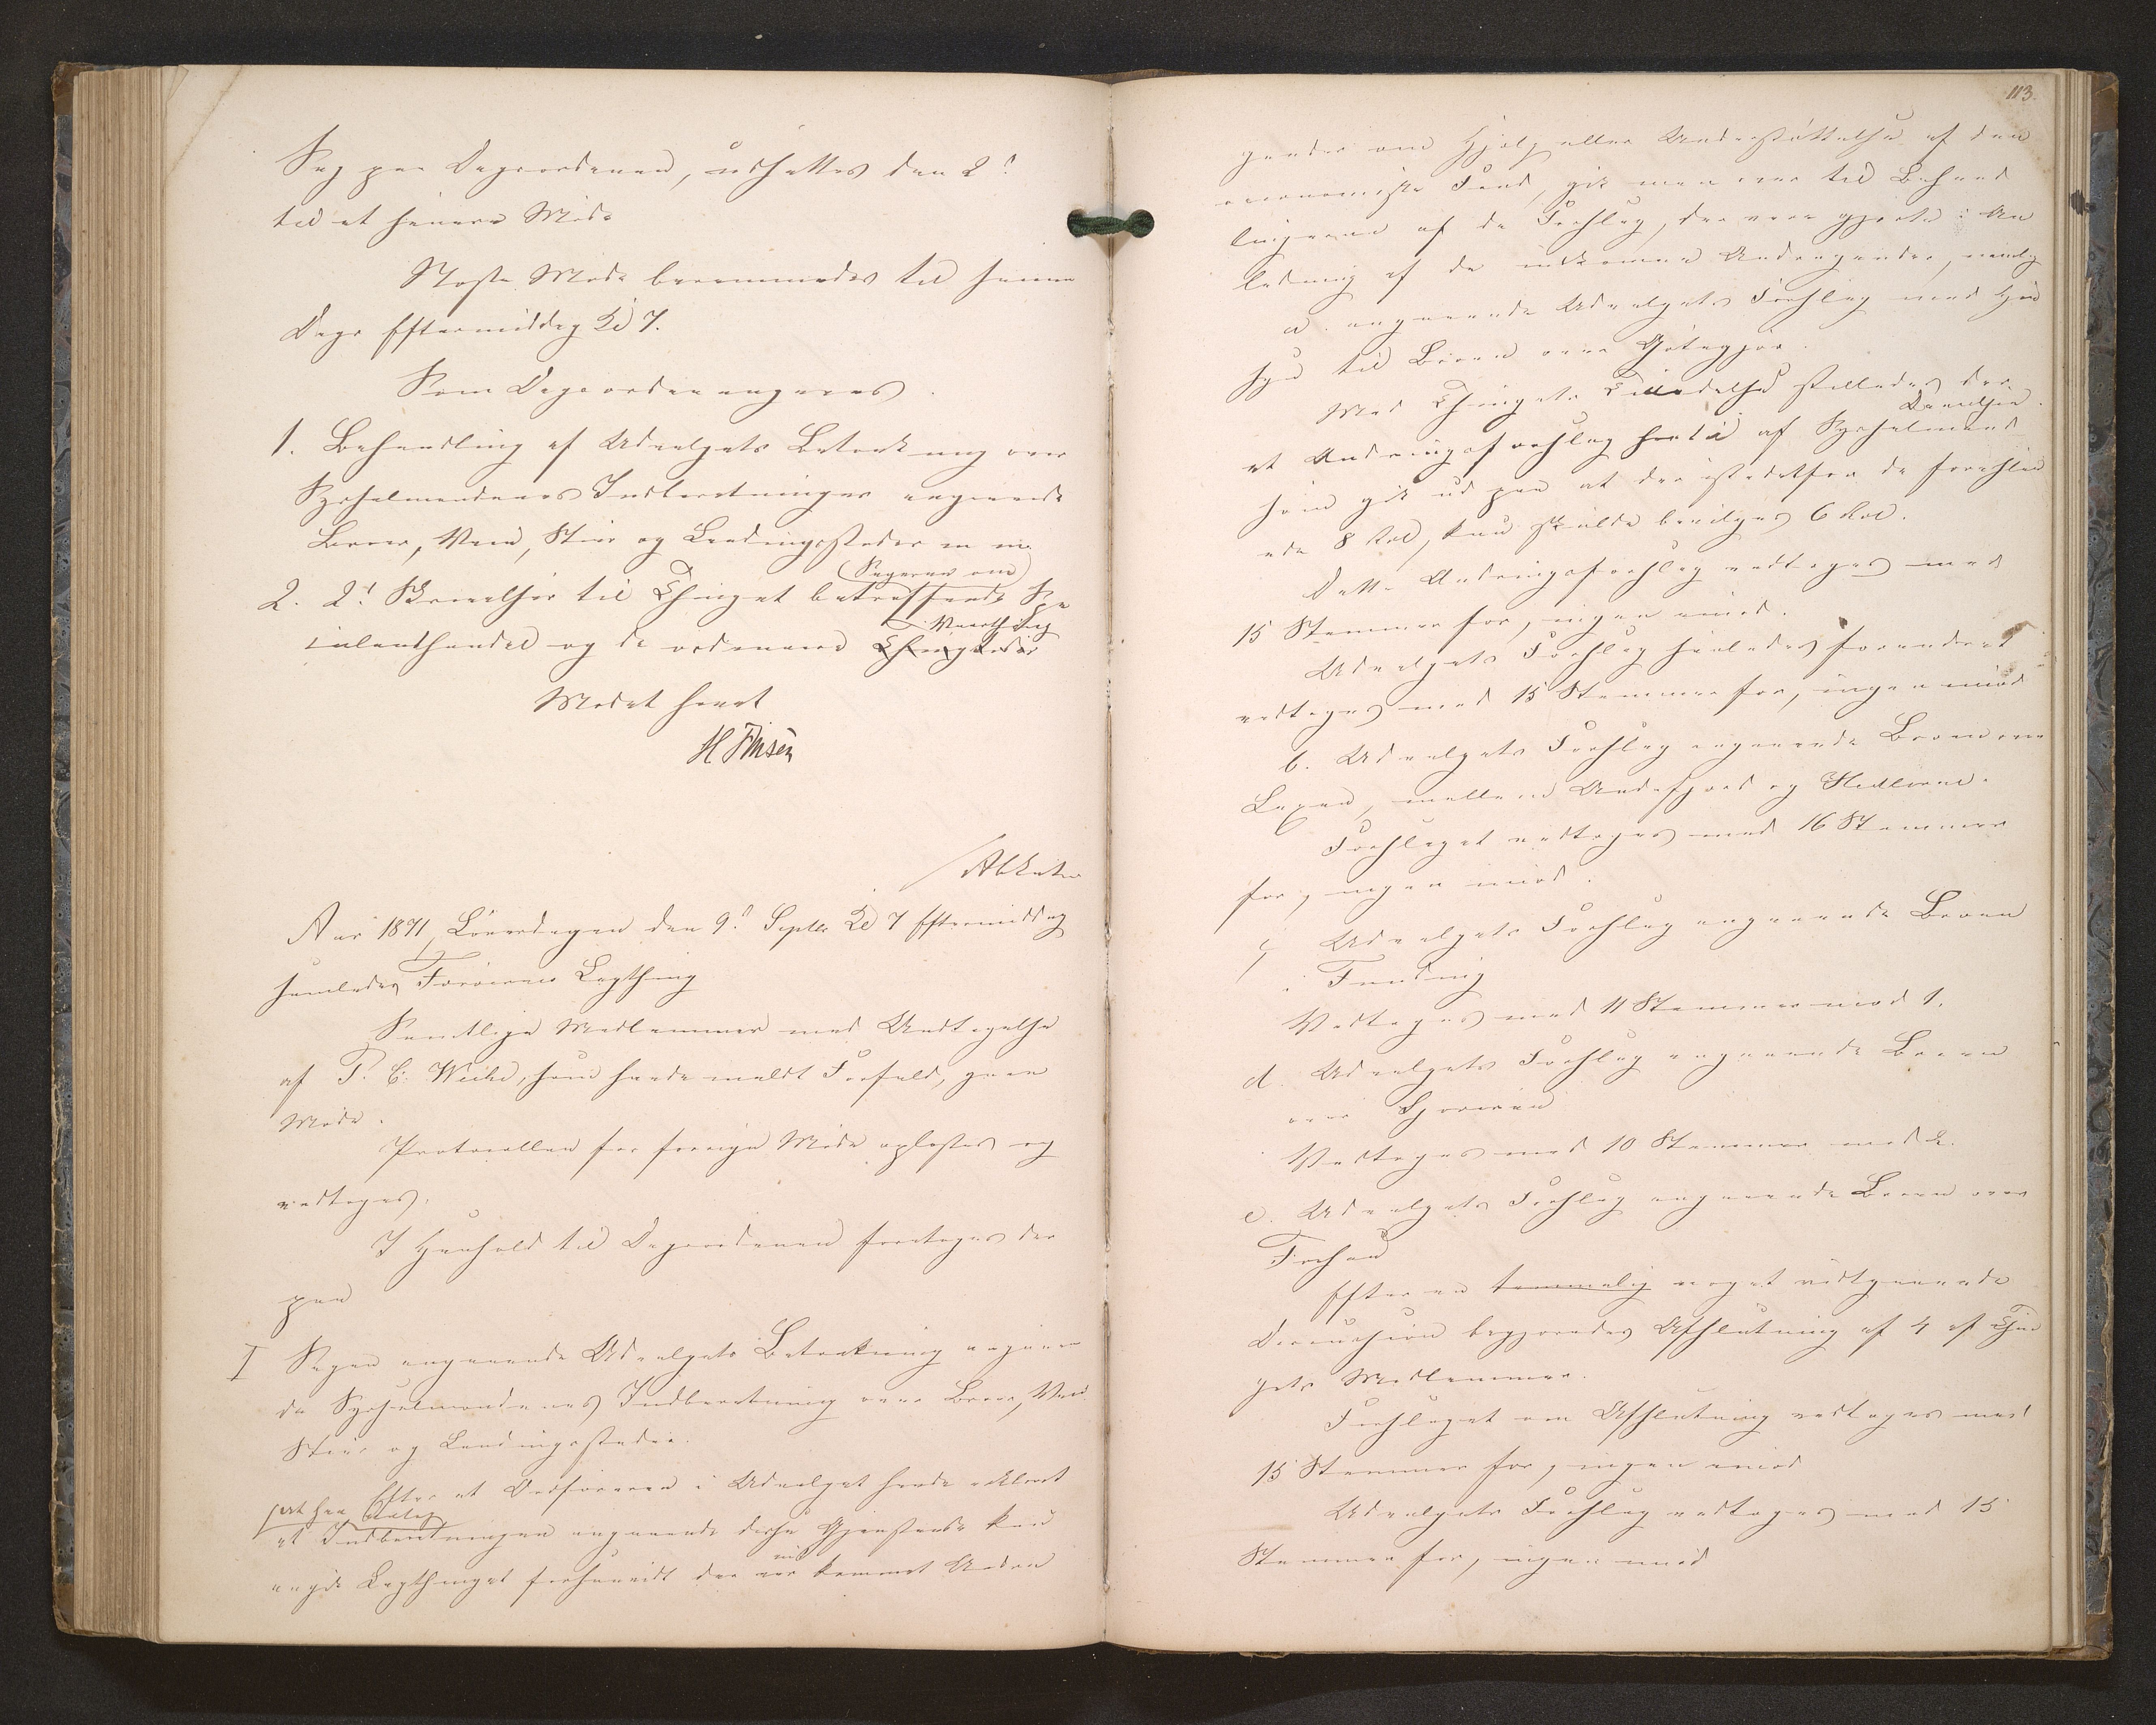 Sag paa Dagsordenen, udsattes den 2d
til et senere Møde
Næste Møde berammedes til samme
Dags Eftermiddag Kl 7.
Som Dagsorden angaves
1. Behandling af Udvalgets Betænkning over
Sysselmændenes Indberetninger angaaende
Broer, Varder, Stier og Landingssteder m m
2. 2d Skrivelser til Thinget betræffende
(Sagerne om)
Islandshandel og de ordinaire Thingsteder
Vaarthing
Mødet hævet
H Finsen
/ A C Lützen
Aar 1871, Löverdagen den 9d Septbr Kl 7 Eftermiddag
samledes Færøernes Lagthing
Samtlige Medlemmer med Undtagelse
af T. C. Weihe, som havde meldt Forfald, gave
Møde.
Protocollen for forrige Møde oplæstes og
vedtoges.
I Henhold til Dagsordenen foretoges der
paa
I Sagen angaaende Udvalgets Betænkning angaaen
de Sysselmændenes Indberetning over Broer,
Stier og Landingssteder.
Efter at Ordføreren i Udvalget havde erklæret
at Indberetningen angaaende disse Gjenstande kun
angik Lagthinget forsaavidt der var kommet Andra
113.
gender om Hjælp eller Understøttelse af den
oeconomiske Fond, gik man over til Behand
lingerne af de Forslag, der vare gjorte i An
ledning af de indkomne Andragender, nemlig
a. angaaende Udvalgets Forslag med Hen
syn til Broen over Götegjov.
Med Thingets Tilladelse stilledes der
et Ændringsforslag hertil af Sysselmand
Davidsen.
som gik ud paa at der istedetfor de foreslaa
ede 8 Rd, kun skulde bevilges 6 Rd.
Dette Ændringsforslag vedtoges med
15 Stemmer for, ingen imod.
Udvalgets Forslag saaledes forandret
vedtoges med 15 Stemmer for, ingen imod
b. Udvalgets Forslag angaaende Broen over
Laxaa, mellem Andefjord og Hellerne.
Forslaget vedtoges med 16 Stemmer
for, ingen imod.
c. Udvalgets Forslag angaaende Broen
i Funding
Vedtoges med 11 Stemmer mod 1.
d. Udvalgets Forslag angaaende Broen
over
Vedtoges med 10 Stemmer mod 2.
e. Udvalgets Forslag angaaende Broen over
Forsaa
Efter en temmelig noget vidtgaaende
Discussion begjæredes Afslutning af 4 af Thin
gets Medlemmer.
Forslaget om Afslutning vedtoges med
15 Stemmer for, ingen imod
Udvalgets Forslag vedtoges med 15
Stemmer for, ingen imod